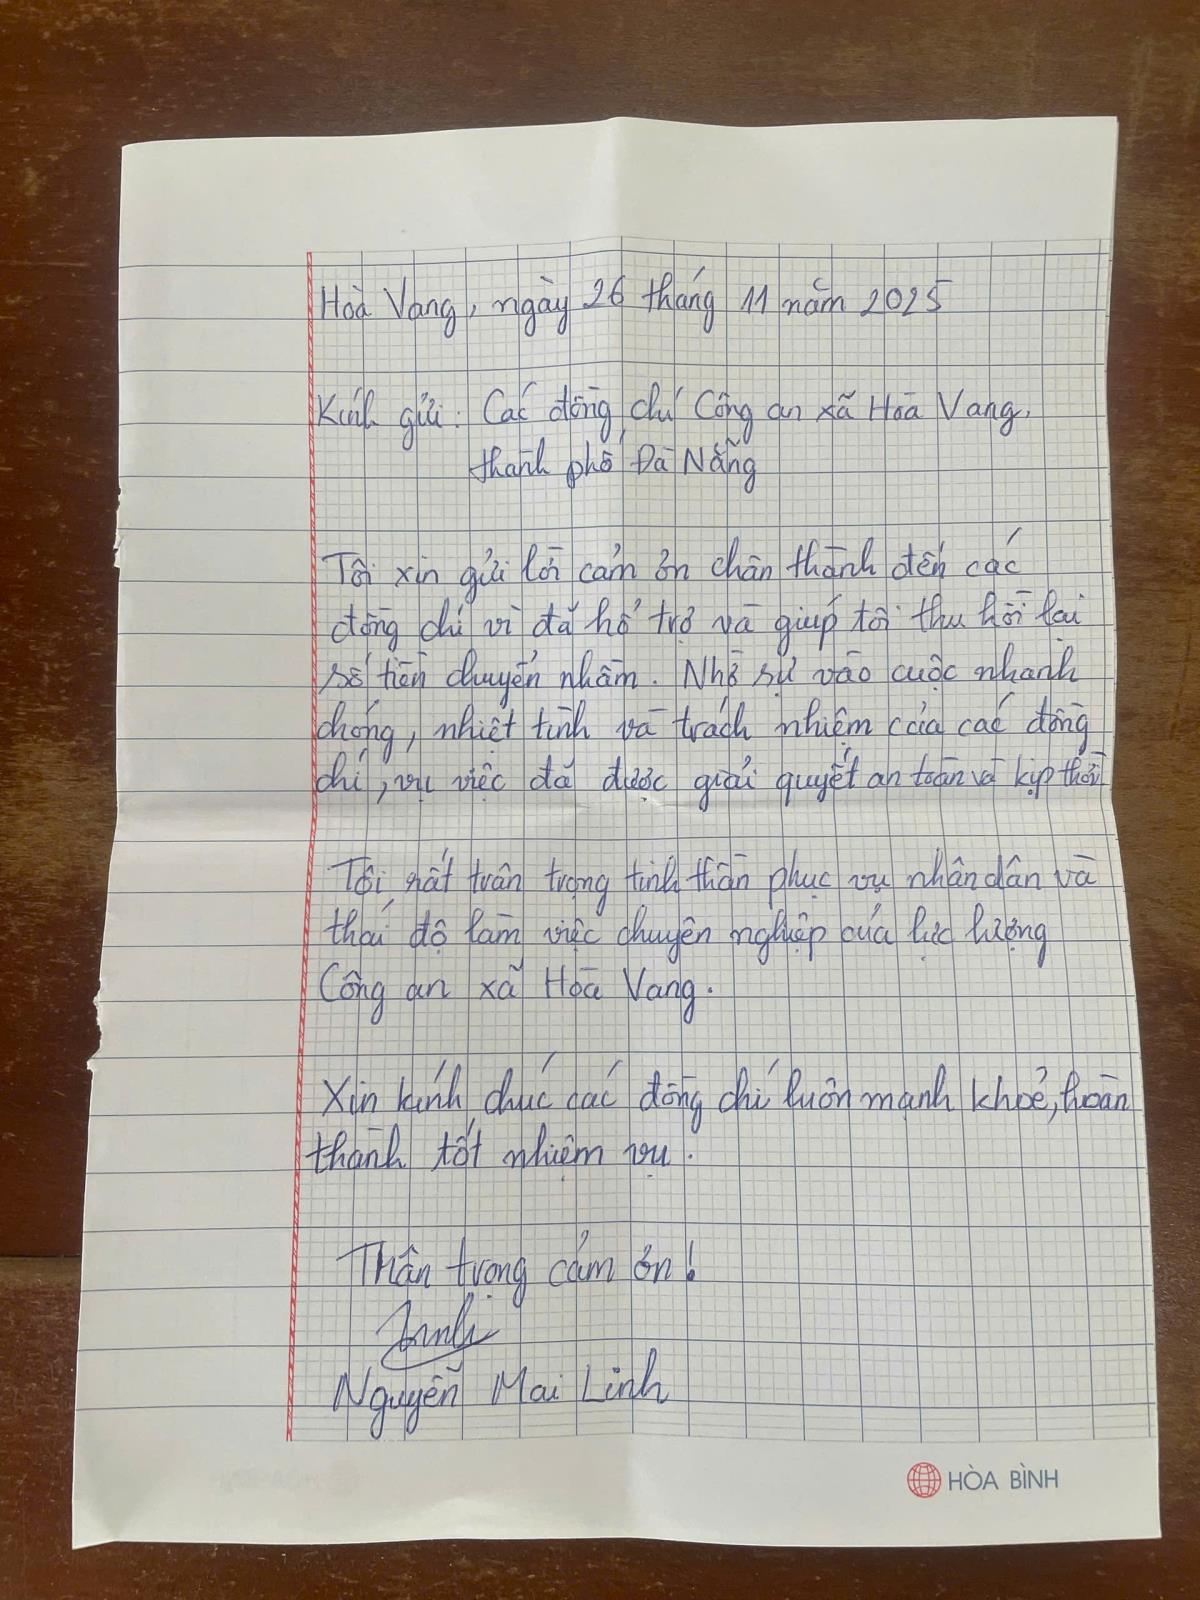 Hoà Vang, ngày 26 tháng 11 năm 2025
Kính gửi: Các đồng chí Công an xã Hoà Vang,
thành phố Đà Nẵng
Tôi xin gửi lời cảm ơn chân thành đến các
đồng chí vì đã hỗ trợ và giúp tôi thu hồi lại
số tiền chuyển nhầm. Nhờ sự vào cuộc nhanh
chóng, nhiệt tình và trách nhiệm của các đồng
chí, vụ việc đã được giải quyết an toàn và kịp thời
Tôi rất trân trọng tinh thần phục vụ nhân dân và
thái độ làm việc chuyên nghiệp của lực lượng
Công an xã Hoà Vang.
Xin kính chúc các đồng chí luôn mạnh khoẻ, hoàn
thành tốt nhiệm vụ.
Trân trọng cảm ơn!
Linh
Nguyễn Mai Linh
HÒA BÌNH